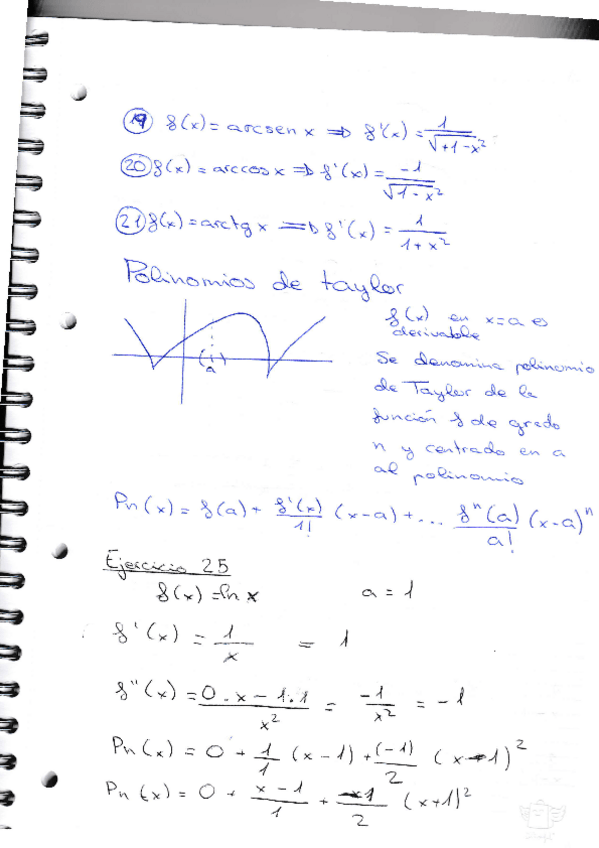 19 f(x) = arcsen x ⇒ f'(x) = 1/√(+1-x²)
20 f(x) = arccos x ⇒ f'(x) = -1/√(1-x²)
21 f(x) = arctg x ⇒ f'(x) = 1/(1+x²)
Polinomios de taylor
f(x) en x=a es
derivable
a
Se denomina polinomio
de Taylor de la
función f de grado
n y centrado en a
al polinomio
Pn(x) = f(a) + f'(x)/1! (x-a) + ... fⁿ(a)/a! (x-a)ⁿ
Ejercicio 25
f(x) = ln x a = 1
f'(x) = 1/x = 1
f''(x) = (0·x - 1·1)/x² = -1/x² = -1
Pn(x) = 0 + 1/1 (x-1) + (-1)/2 (x-1)²
Pn(x) = 0 + (x-1)/1 + -1/2 (x+1)²